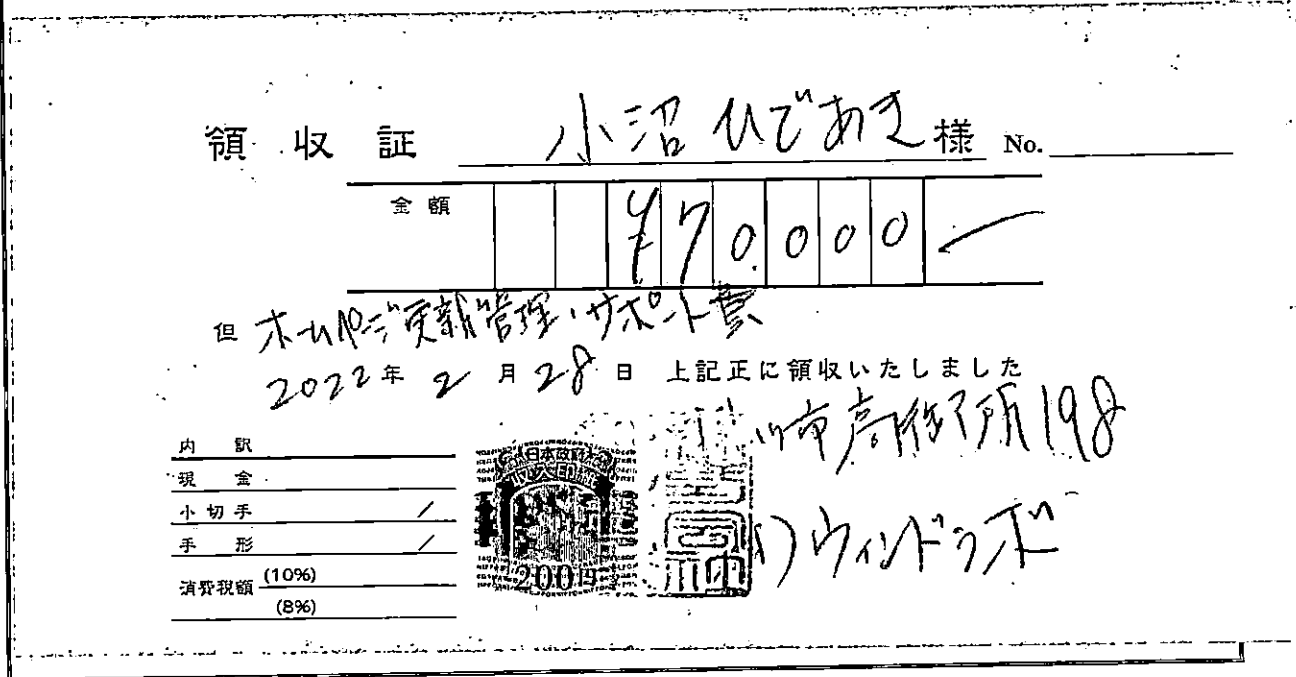 領収証 小沼 ひであき 様 No.
金額 ¥70,000
但 ホームページ更新管理・サポート費
2022年 2月28日 上記正に領収いたしました
内訳
現金
小切手
手形
消費税額 (10%)
(8%)
日本政府
収入印紙
200円
198
ウィンドラボ